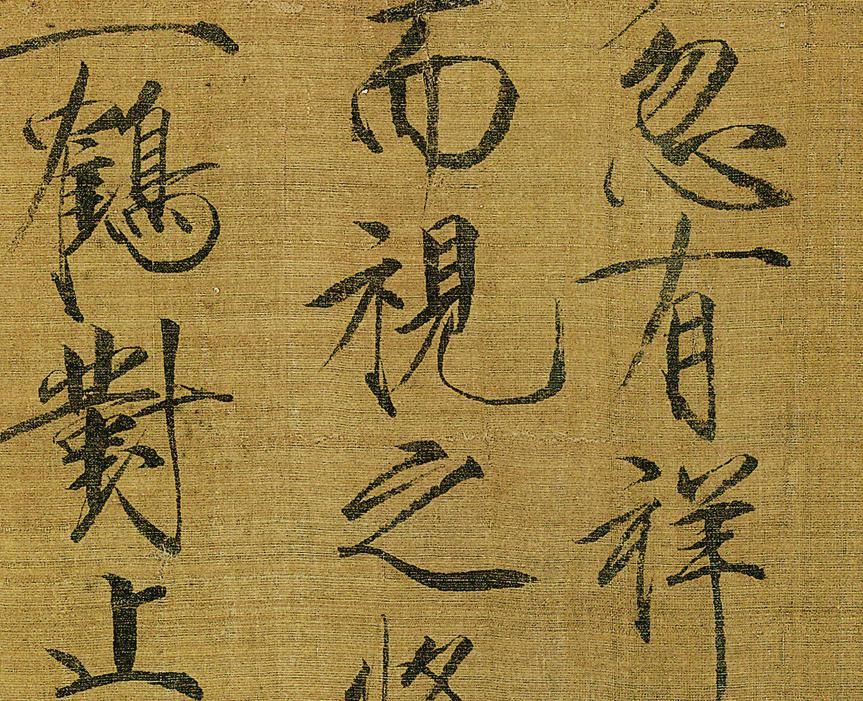 忽有祥
而視之
鶴對止